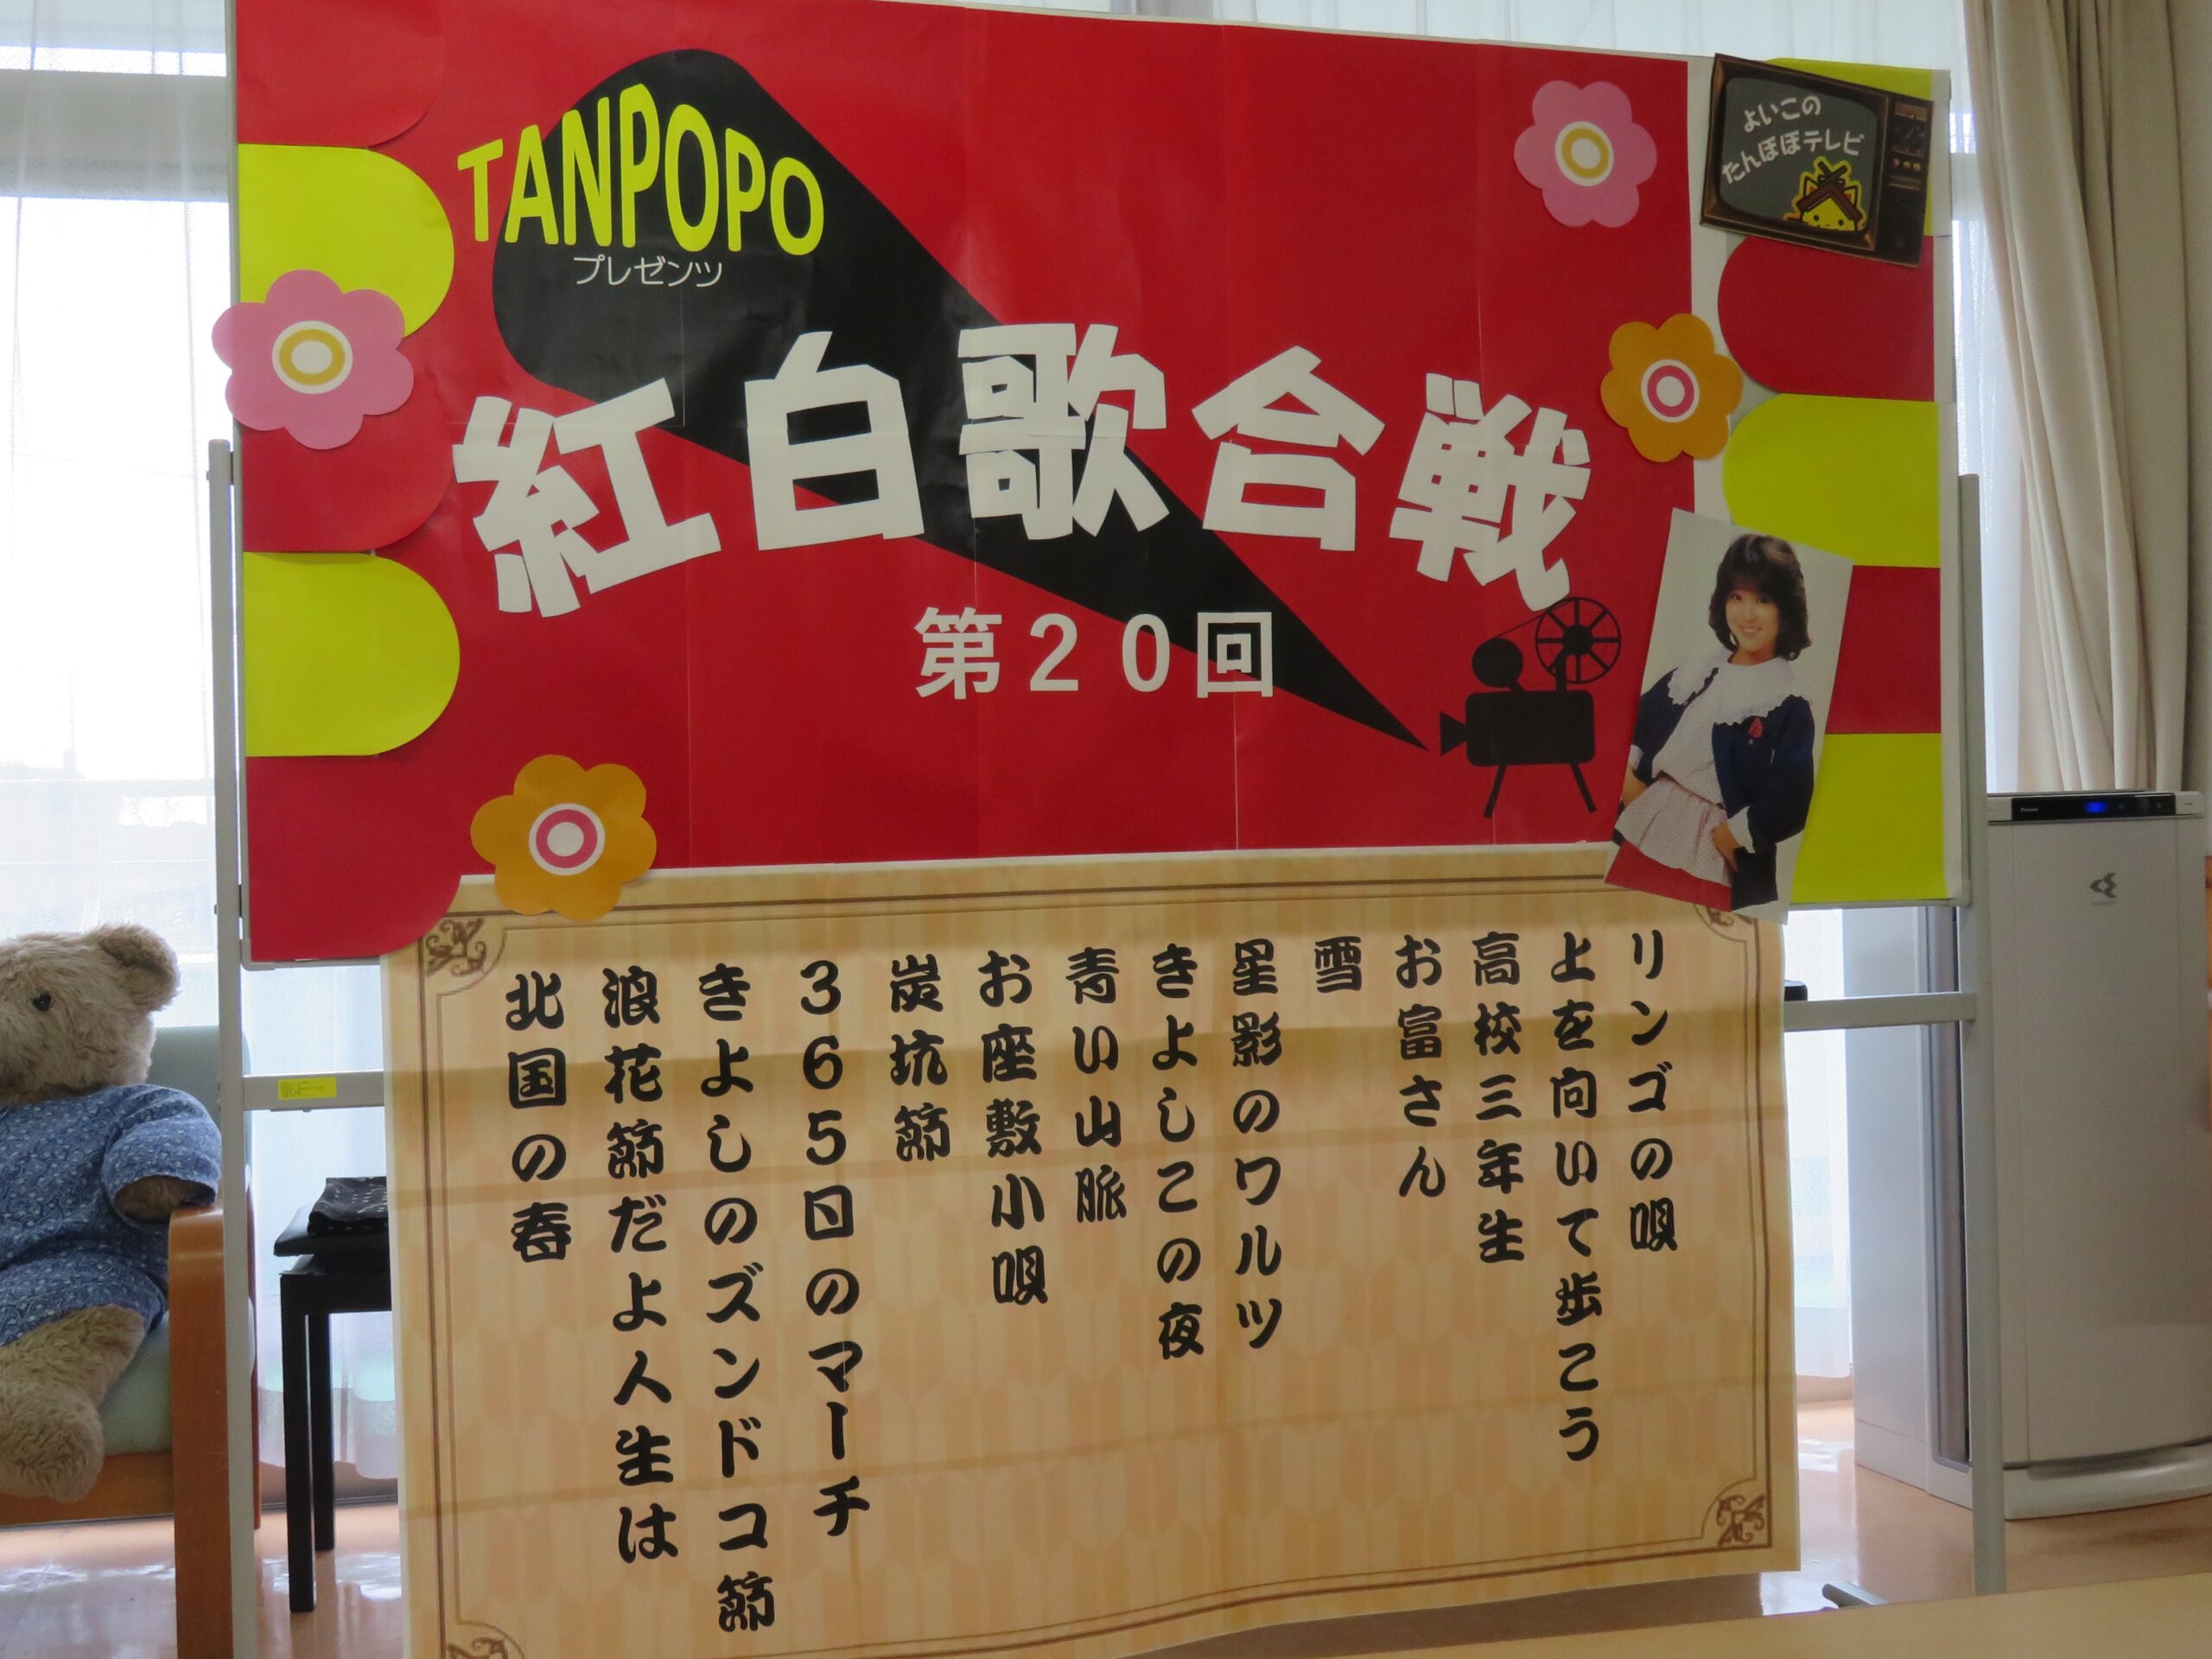 TANPOPO
プレゼンツ
紅白歌合戦
第20回
よいこの
たんぽぽテレビ
リンゴの唄
上を向いて歩こう
高校三年生
お富さん
雪
星影のワルツ
きよしこの夜
青い山脈
お座敷小唄
炭坑節
365日のマーチ
きよしのズンドコ節
浪花節だよ人生は
北国の春